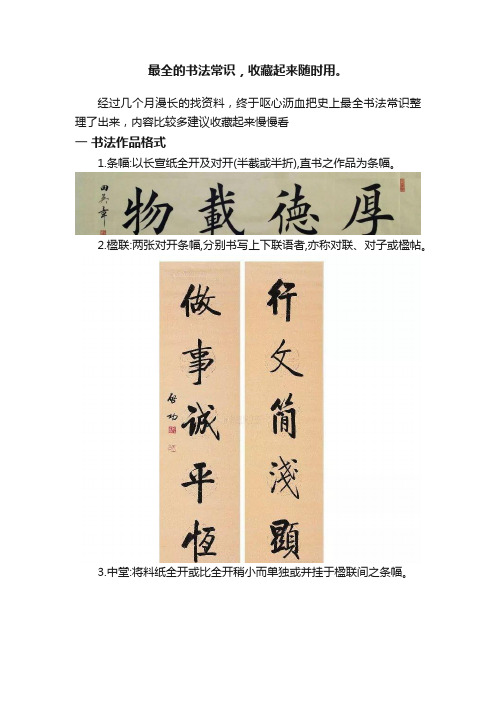 最全的书法常识，收藏起来随时用。
经过几个月漫长的找资料，终于呕心沥血把史上最全书法常识整
理了出来，内容比较多建议收藏起来慢慢看
一 书法作品格式
1.条幅:以长宣纸全开及对开(半截或半折),直书之作品为条幅。
厚德載物
田英章
2.楹联:两张对开条幅,分别书写上下联语者,亦称对联、对子或楹帖。
行文簡淺顯
做事誠平恆
启功
3.中堂:将料纸全开或比全开稍小而单独或并挂于楹联间之条幅。